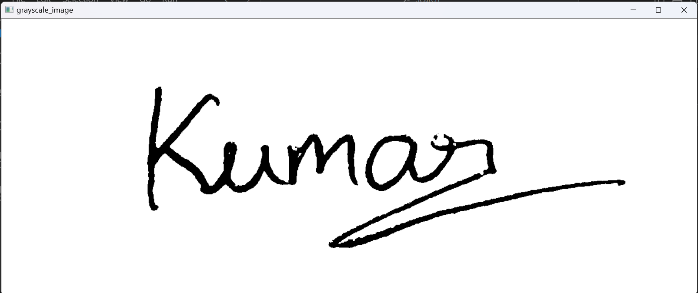 grayscale_image
Kumar